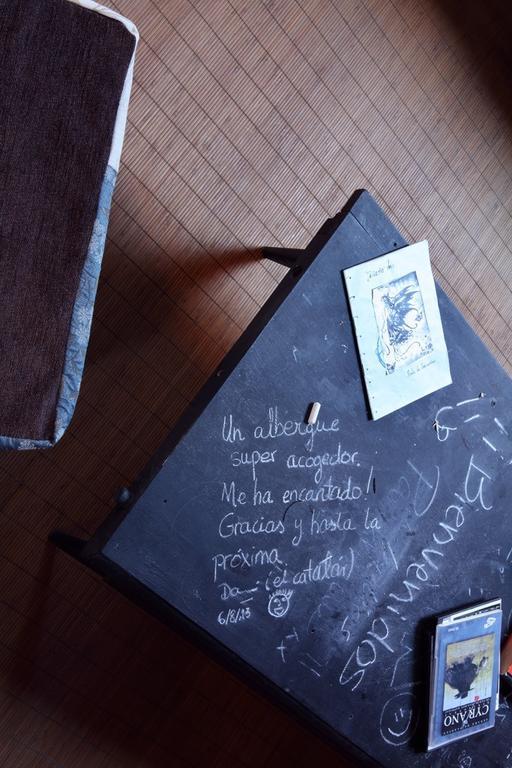 Un albergue
super acogedor.
Me ha encantado!
Gracias y hasta la
próxima.
(el catalán)
6/8/13
¡¡Bienvenidos
CYRANO